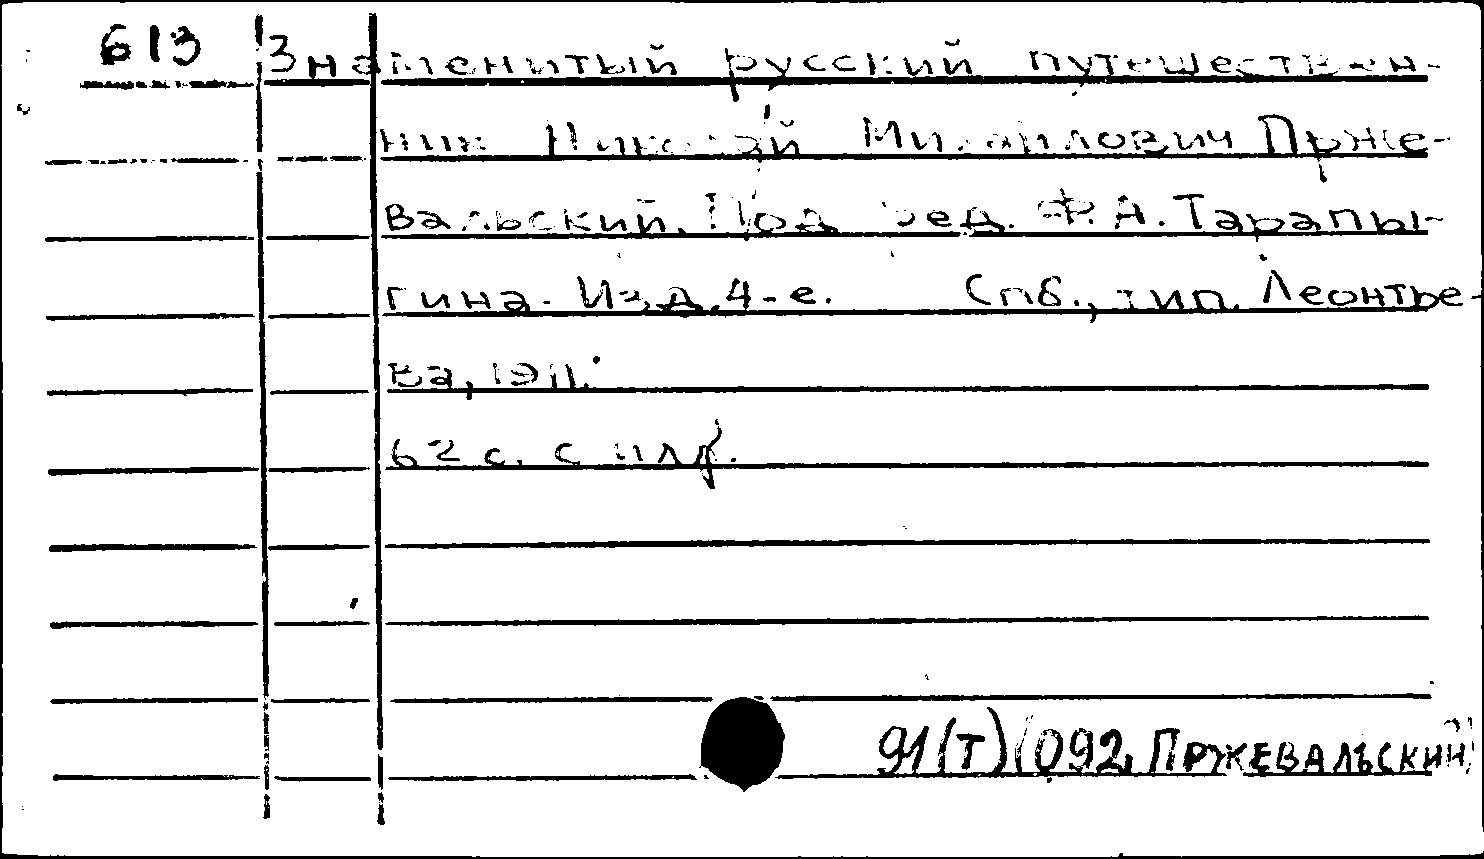 613 Знаменитый русский путешествен-
ник Николай Михайлович Прже-
вальский. Под ред. Ф.А. Тарапы-
гина. Изд. 4-е. Спб., тип. Леонтье-
ва, 1911.
62 с. с илл.
91(Т)(092, Пржевальский)